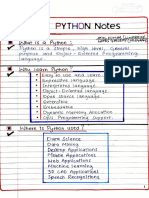 PYTHON Notes
What is a Python?
Python is a Simple, High level, General
purpose and Object - Oriented Programming
language.
Why learn Python?
Easy to use and Learn
Expressive Language
Interpreted Language
Object - Oriented Language
Open Source Language
Extensible
Embeddable
Dynamic Memory Allocation
GUI Programming Support
Where is Python used?
Data Science
Data Mining
Desktop Applications
Mobile Applications
Web Applications
Machine Learning
3D CAD Applications
Speech Recognitions